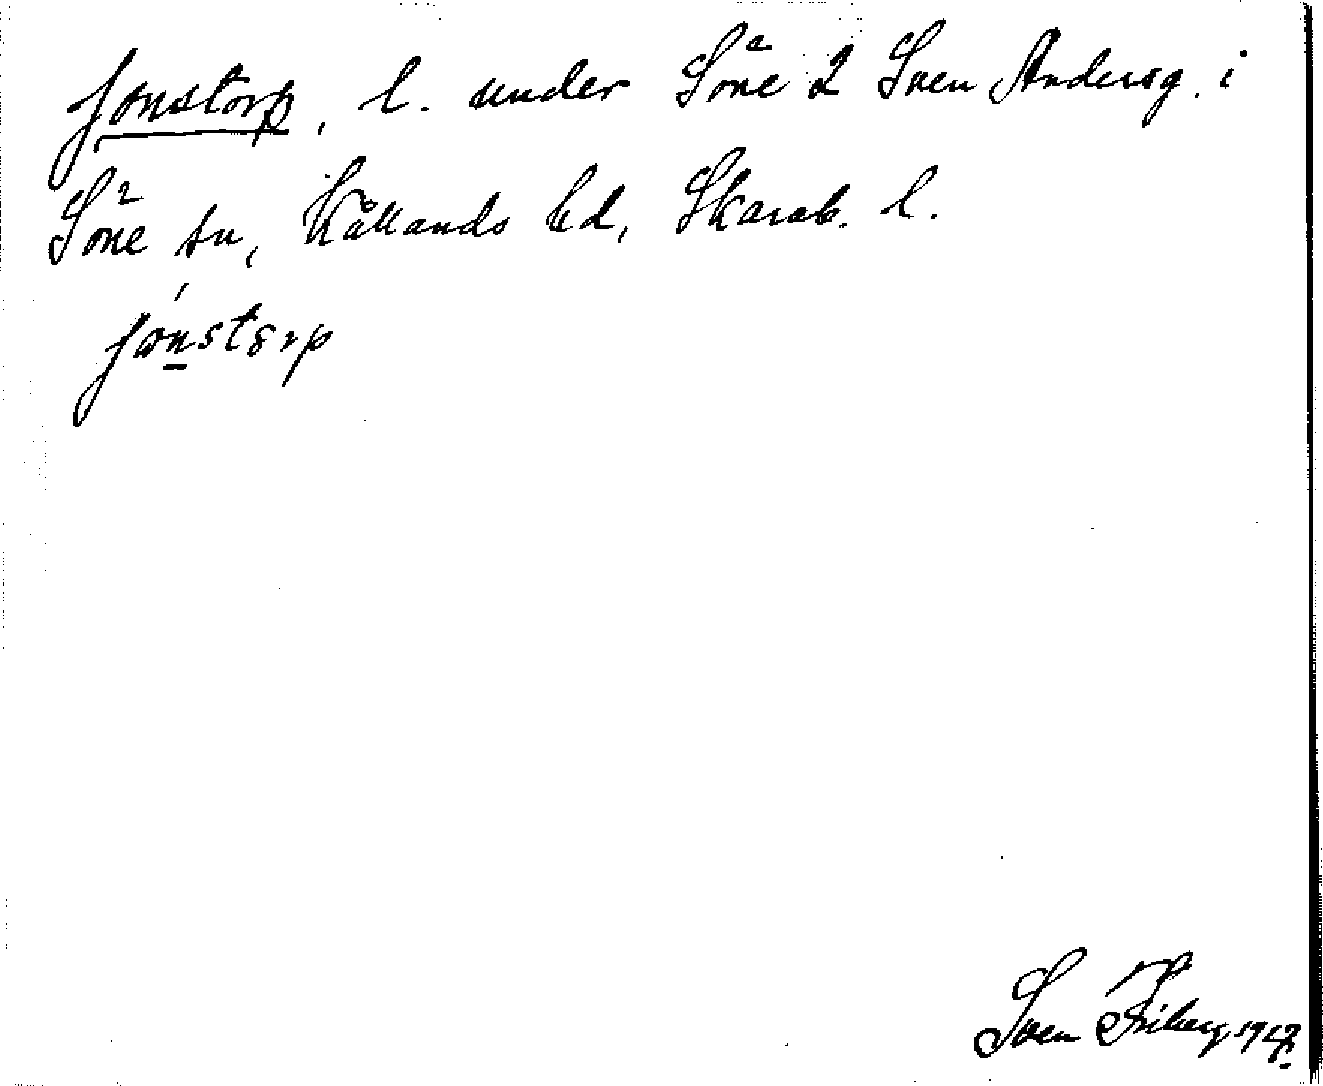 Jonstorp, l. under Söne 2 Sven Andersg. i
Söne sn, Kållands hd, Skarab. l.
Jo̱nstorp
Sven Friberg 1947.